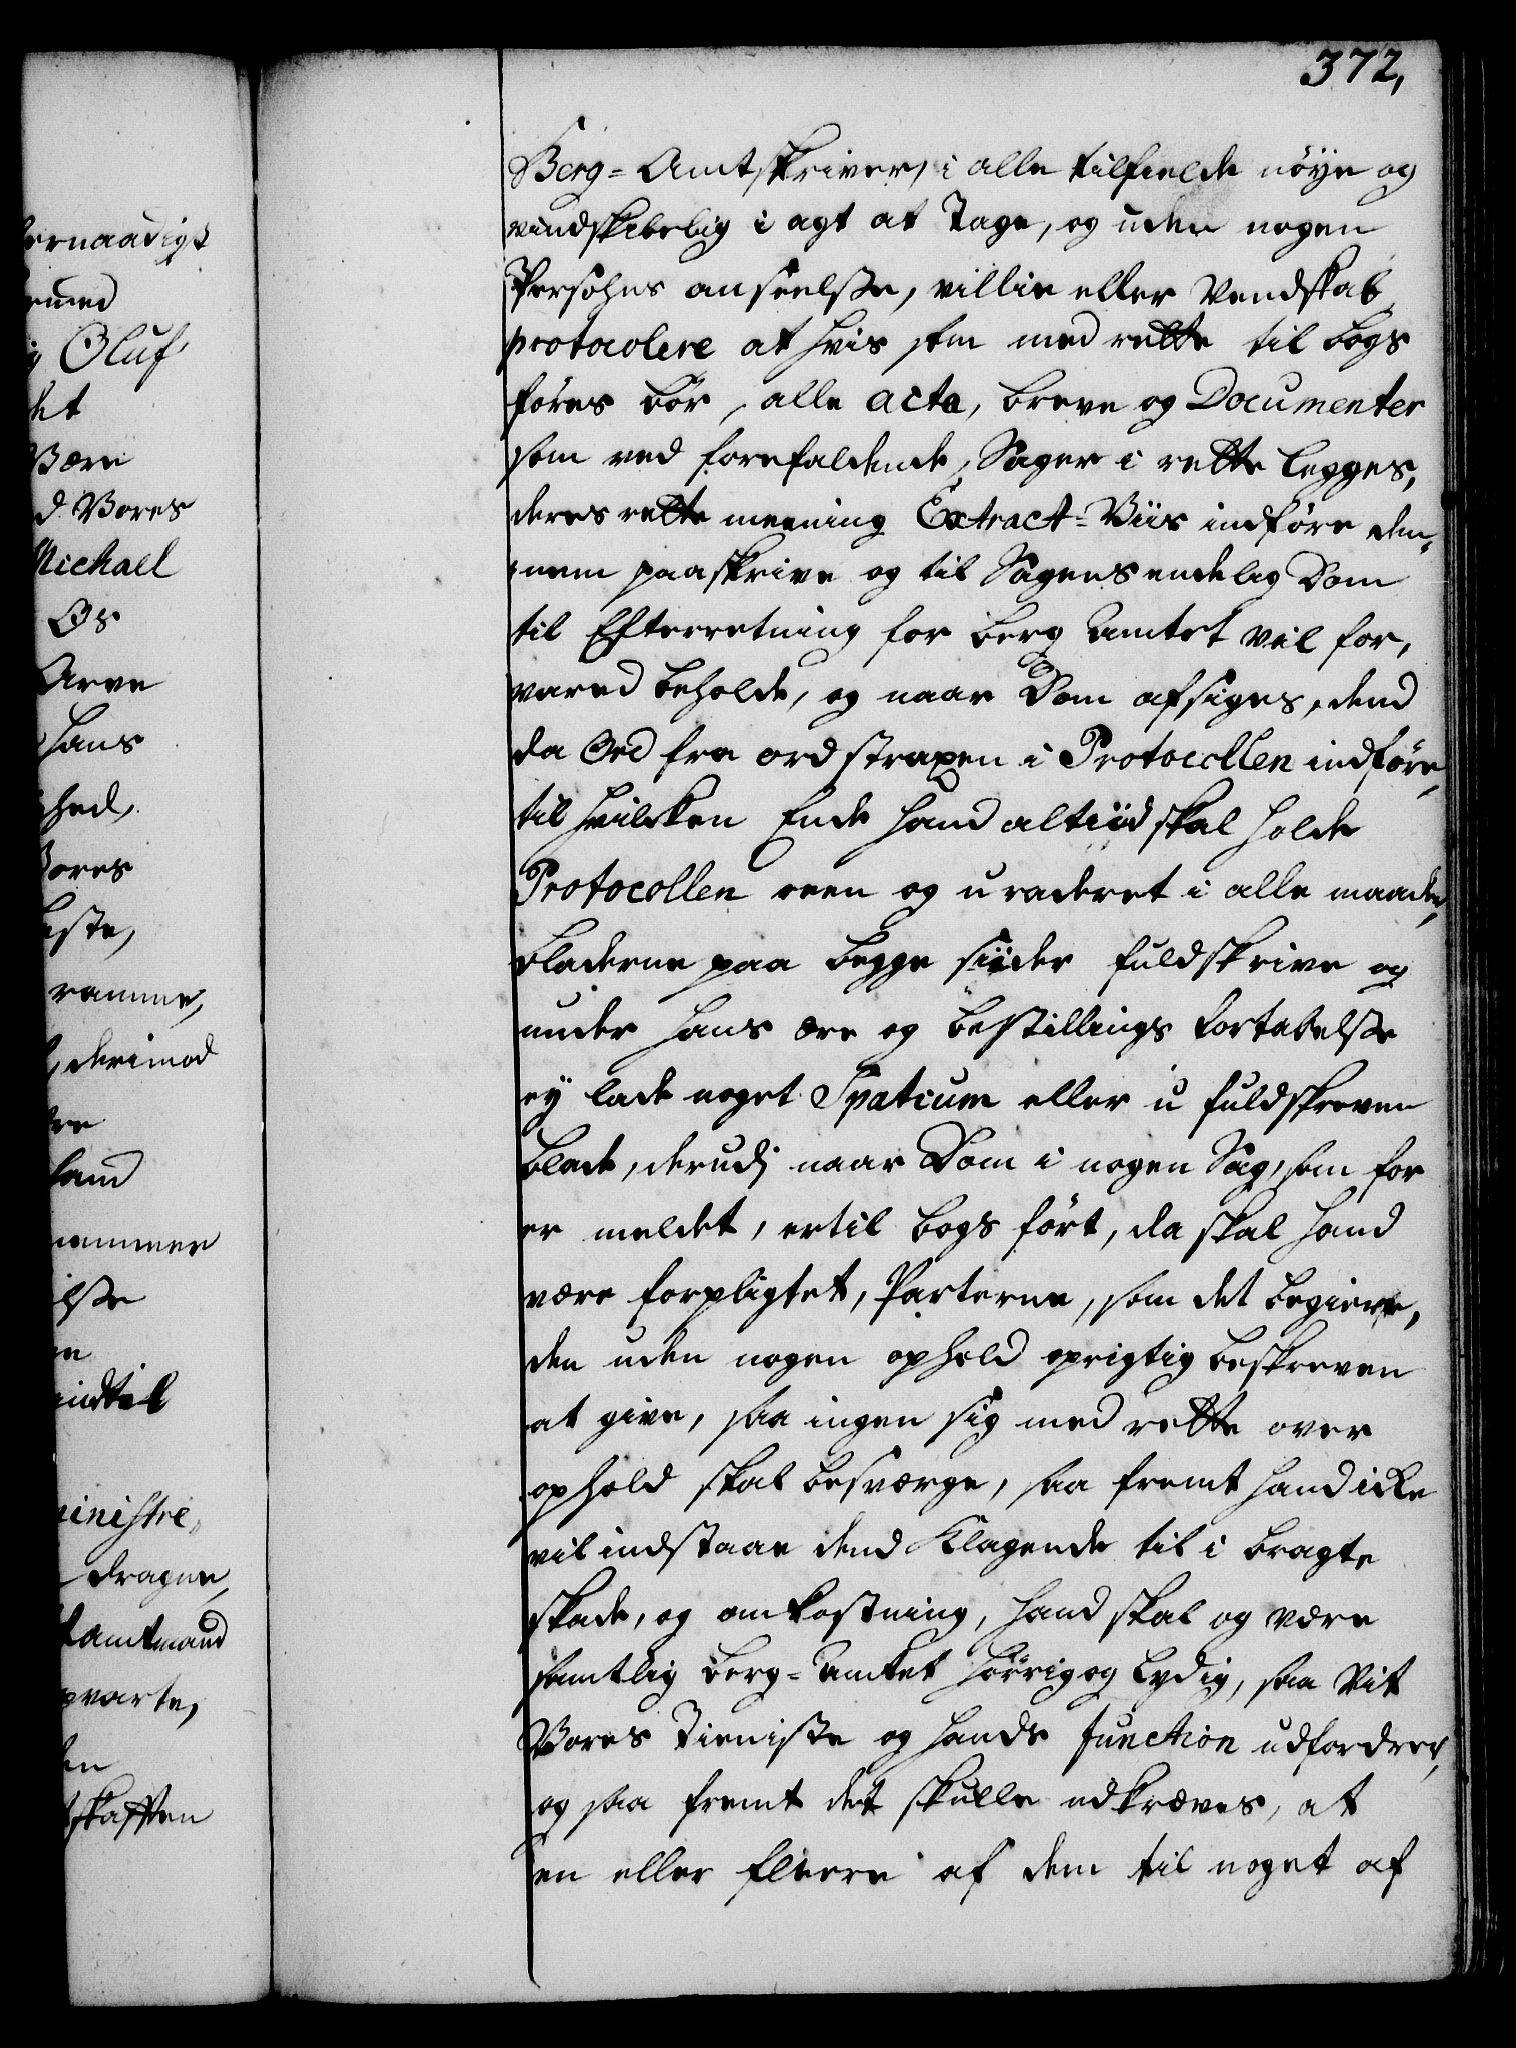 372,
Berg=Amtskriver, i alle tilfælde nöye og
vindskibelig i agt at Tage, og uden nogen
Persohns anseelsse, villie eller Vendskab
protocolere at hvis som med rette til bogs
föres bör, alle acta, breve og Documenter
som ved forefaldende Sager i rette legges,
deres rette meening Extract=Viis indföre den,
nem paaskrive og til Sagens endelig Dom
til Efterretning for berg Amtet vel for,
vared beholde, og naar Dom afsiges, dend
da Ord fra ord straxen i Protocollen indföre,
til hvilcken Ende hand altiid skal holde
Protocollen reen og uraderet i alle maader,
bladerne paa begge siider fuldskrive og
under hans ære og bestillings fortabelsse
ey lade noget Spatium eller u fuldskreven
blade, derudj naar Dom i nogen Sag, som for
er meldet, ertil bogs fört, da skal hand
være forpligtet, Parterne, som det begiere,
den uden nogen ophold oprigtig beskreven
at give, saa ingen sig med rette over
ophold skal besværge, saa fremt hand icke
vil indstaae dend Klagende til i bragte
skade, og omkostning, hand skal og være
samtlig berg=Amtet hörrig og Lydig, saa vit
Vores Tieniste og hands function udfordrer,
og saa fremt det skulle udkræves, at
en eller fleere af dem til noget af
ernaadigst
med
Oluf
det
Være
Vores
Michael
Os
Arve
hans
hed,
Vores
beste,
ramme,
derimod
hand
lsse
indtil
ministre,
dragne,
amtmand
opvarte,
skafften